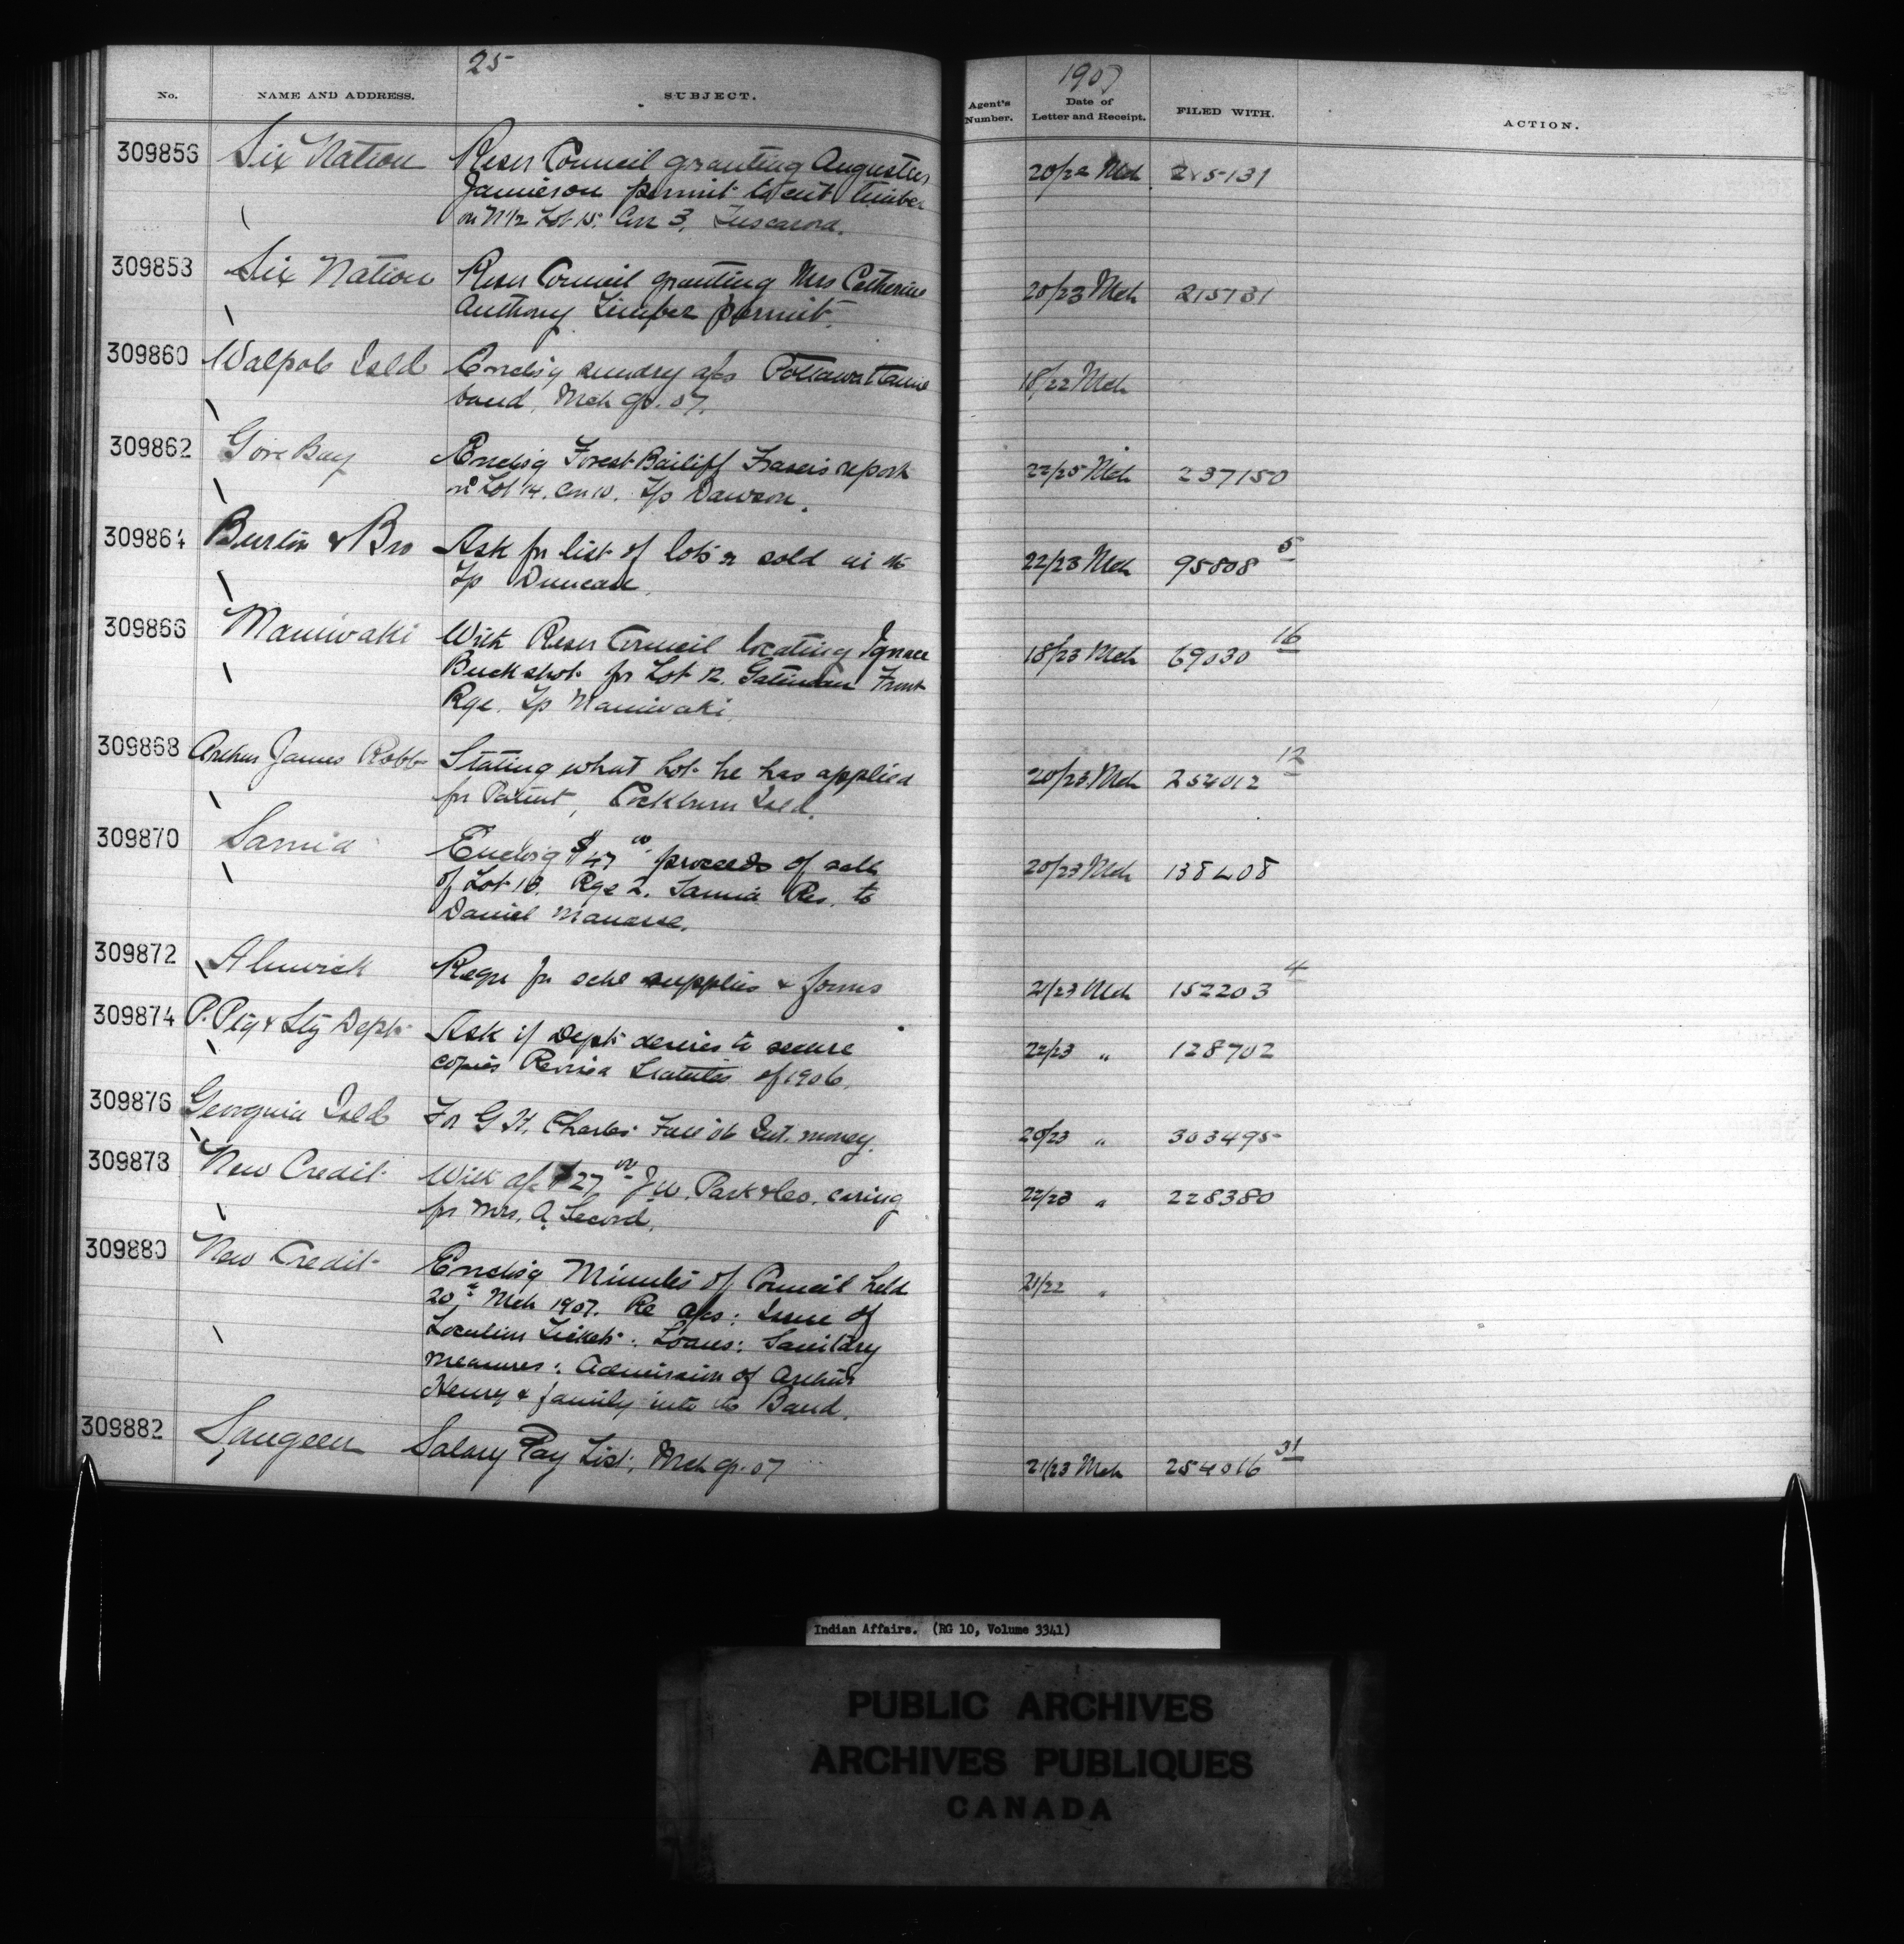 25
1907
No.
NAME AND ADDRESS.
SUBJECT.
Agent's Number.
Date of Letter and Receipt.
FILED WITH.
ACTION.
309856 Six Nation Resn Council granting Augustus 20/22 Mch 215131
Jamieson permit to cut timber
on N½ Lot 15, Con 3, Tuscarora.
309858 Six Nation Resn Council granting Mrs Catherine 20/23 Mch 215131
Anthony Timber permit.
309860 Walpole Isld Enclsg sundry a/cs Pottawattamie 18/22 Mch
band, Mch qr. 07.
309862 Gore Bay Enclsg Forest Bailiff Fraser's report 22/25 Mch 237150
on Lot 14, Con 10, Tp Dawson.
309864 Burton & Bro Ask for list of lots sold in the 22/23 Mch 95808 5
Tp Duncan.
309866 Maniwaki With Resn Council locating Ignace 18/23 Mch 69030 16
Buckshot for Lot 12, Gatineau Front
Rge. Tp Maniwaki.
309868 Arthur James Robb Stating what Lot he has applied 20/23 Mch 254012 12
for Patent, Cockburn Isld.
309870 Sarnia Enclsg $47 00 proceeds of sale 20/23 Mch 138408
of Lot 18, Rge 2, Sarnia Res. to
Daniel Manasse.
309872 Alnwick Reqn for schl supplies & forms 21/23 Mch 152203 4
309874 P. Ptg & Sty Dept Ask if Dept desires to secure 22/23 " 128702
copies Revised Statutes of 1906.
309876 Georgina Isld For G H. Charles Fall 06 Int. money. 20/23 " 303495
309878 New Credit With a/c $27 00 J.W. Park & Co. caring 22/23 " 228380
for Mrs. A. Secord.
309880 New Credit Enclsg Minutes of Council held 21/22 "
20th Mch 1907. Re a/cs: Issue of
Location Tickets: Loans: Sanitary
measures: Admission of Arthur
Henry & family into the Band.
309882 Saugeen Salary Pay List, Mch qr. 07 21/23 Mch 254016 31
Indian Affairs. (RG 10, Volume 3341)
PUBLIC ARCHIVES
ARCHIVES PUBLIQUES
CANADA